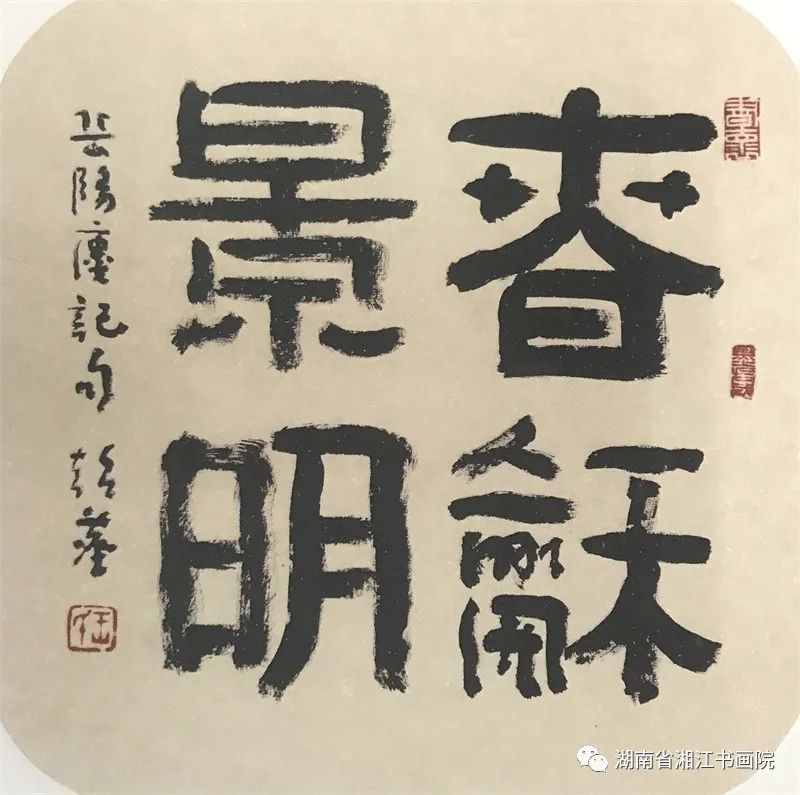 春龢
景明
岳陽廔記句
湖南省湘江书画院